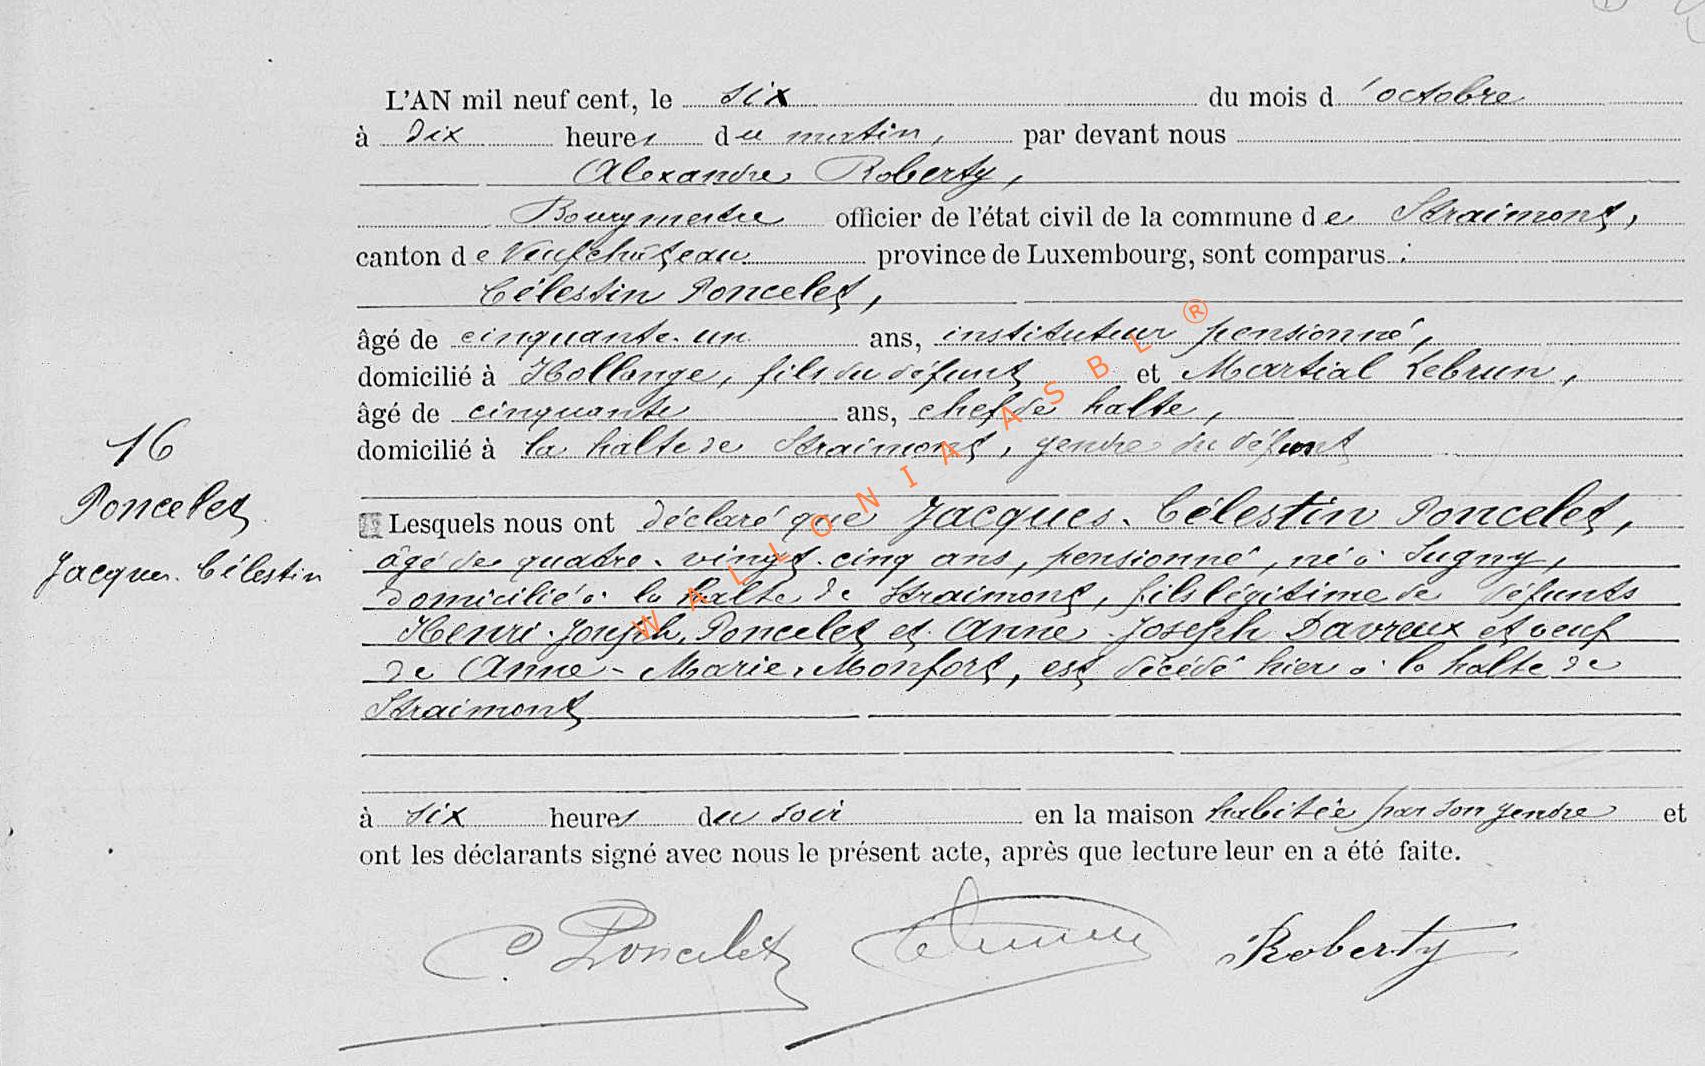 L'AN mil neuf cent, le six du mois d'octobre
à dix heures du matin, par devant nous
Alexandre Roberty,
Bourgmestre officier de l'état civil de la commune de Straimont,
canton de Neufchâteau province de Luxembourg, sont comparus :
Célestin Poncelet,
âgé de cinquante-un ans, instituteur pensionné,
domicilié à Hollange, fils du défunt et Martial Lebrun,
âgé de cinquante ans, chef de halte,
domicilié à la halte de Straimont, gendre du défunt
16
Poncelet
Jacques-Célestin
Lesquels nous ont déclaré que Jacques-Célestin Poncelet,
âgé de quatre-vingt-cinq ans, pensionné, né à Sugny,
domicilié à la halte de Straimont, fils légitime de défunts
Henri-Joseph Poncelet et Anne-Joseph Davreux et veuf
de Anne-Marie Monfort, est décédé hier à la halte de
Straimont
à six heures du soir en la maison habitée par son gendre et
ont les déclarants signé avec nous le présent acte, après que lecture leur en a été faite.
C. Poncelet Lebrun Roberty
WALLONIA ASBL ®